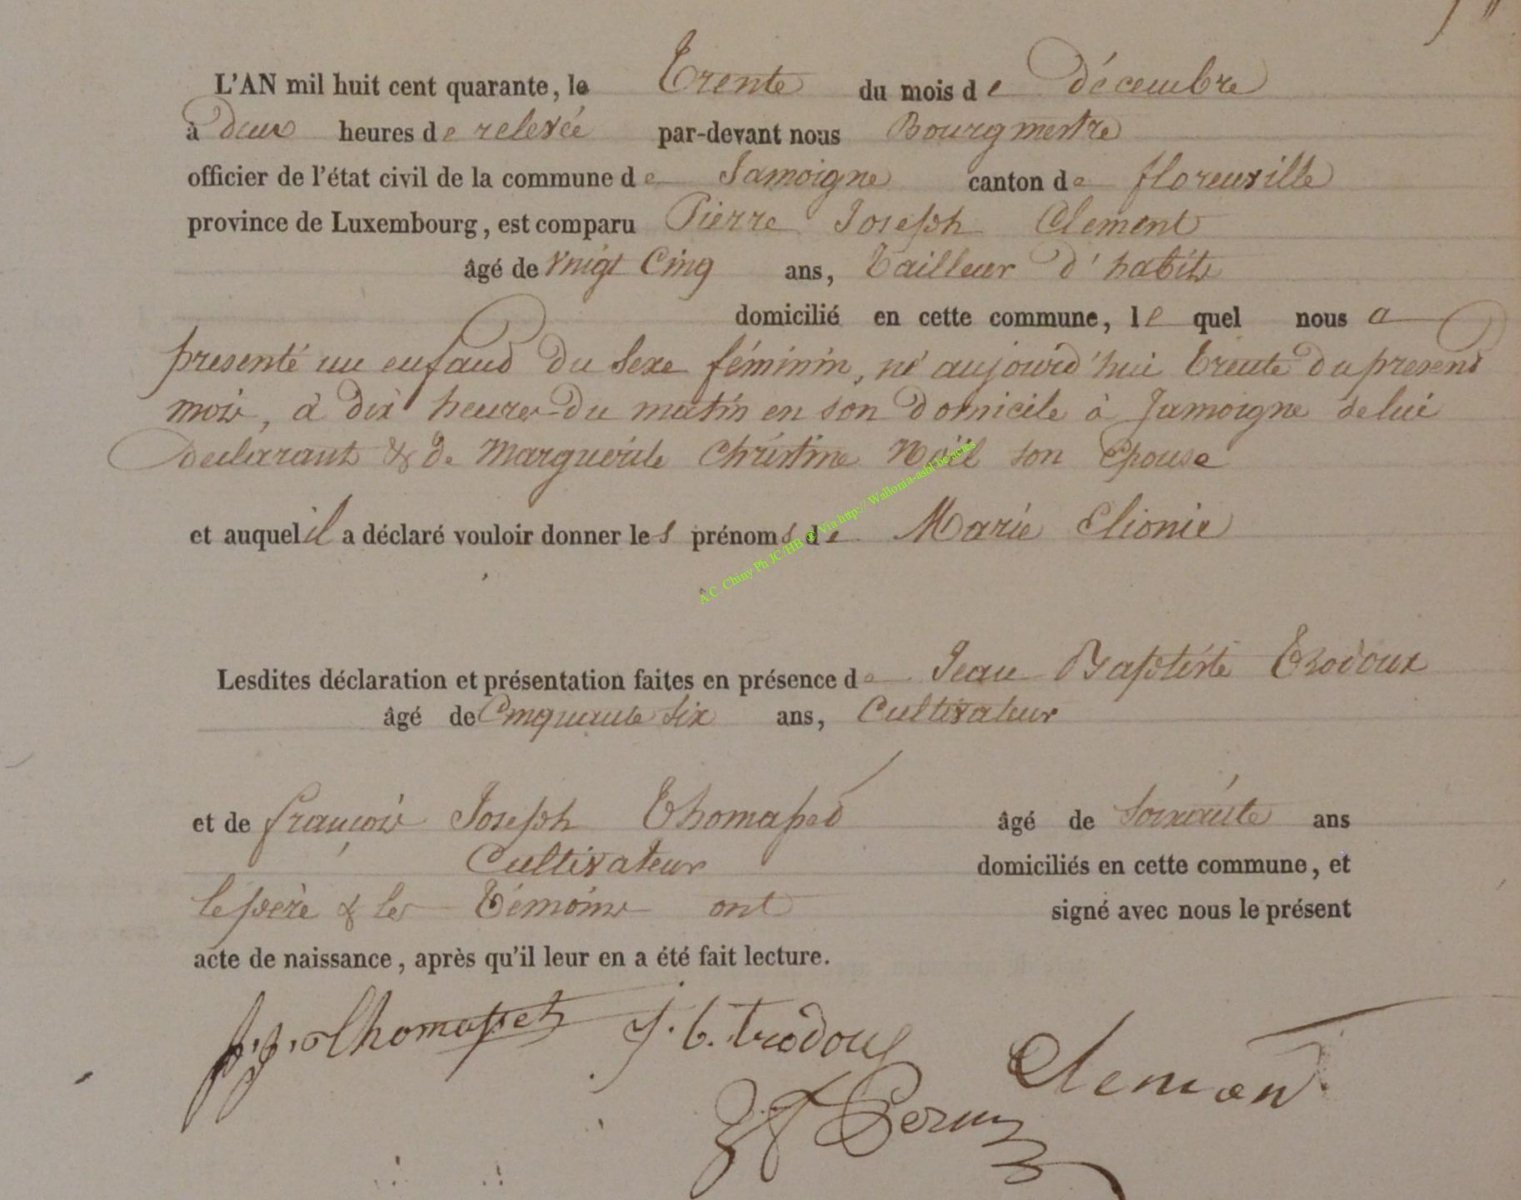 L'AN mil huit cent quarante, le Trente du mois de décembre
à deux heures de relevée par-devant nous Bourgmestre
officier de l'état civil de la commune de Jamoigne canton de florenville
province de Luxembourg, est comparu Pierre Joseph Clement
âgé de vingt Cinq ans, Tailleur d'habits
domicilié en cette commune, le quel nous a
presenté un enfand du sexe féminin, né aujourd'hui trente du present
mois, à dix heures du matin en son domicile à Jamoigne de lui
declarant & de Marguerite Christine Noël son Epouse
et auquel il a déclaré vouloir donner les prénoms de Marie Elionie
A.C. Chiny Ph JC/HB Via http://Wallonia-asbl.be
Lesdites déclaration et présentation faites en présence de Jean Baptiste Trodoux
âgé de Cinquante six ans, Cultivateur
et de françois Joseph Thomassed âgé de soixante ans
Cultivateur domiciliés en cette commune, et
le père & les Témoins ont signé avec nous le présent
acte de naissance, après qu'il leur en a été fait lecture.
f. j. Thomasset J. b. trodoux
Clemand